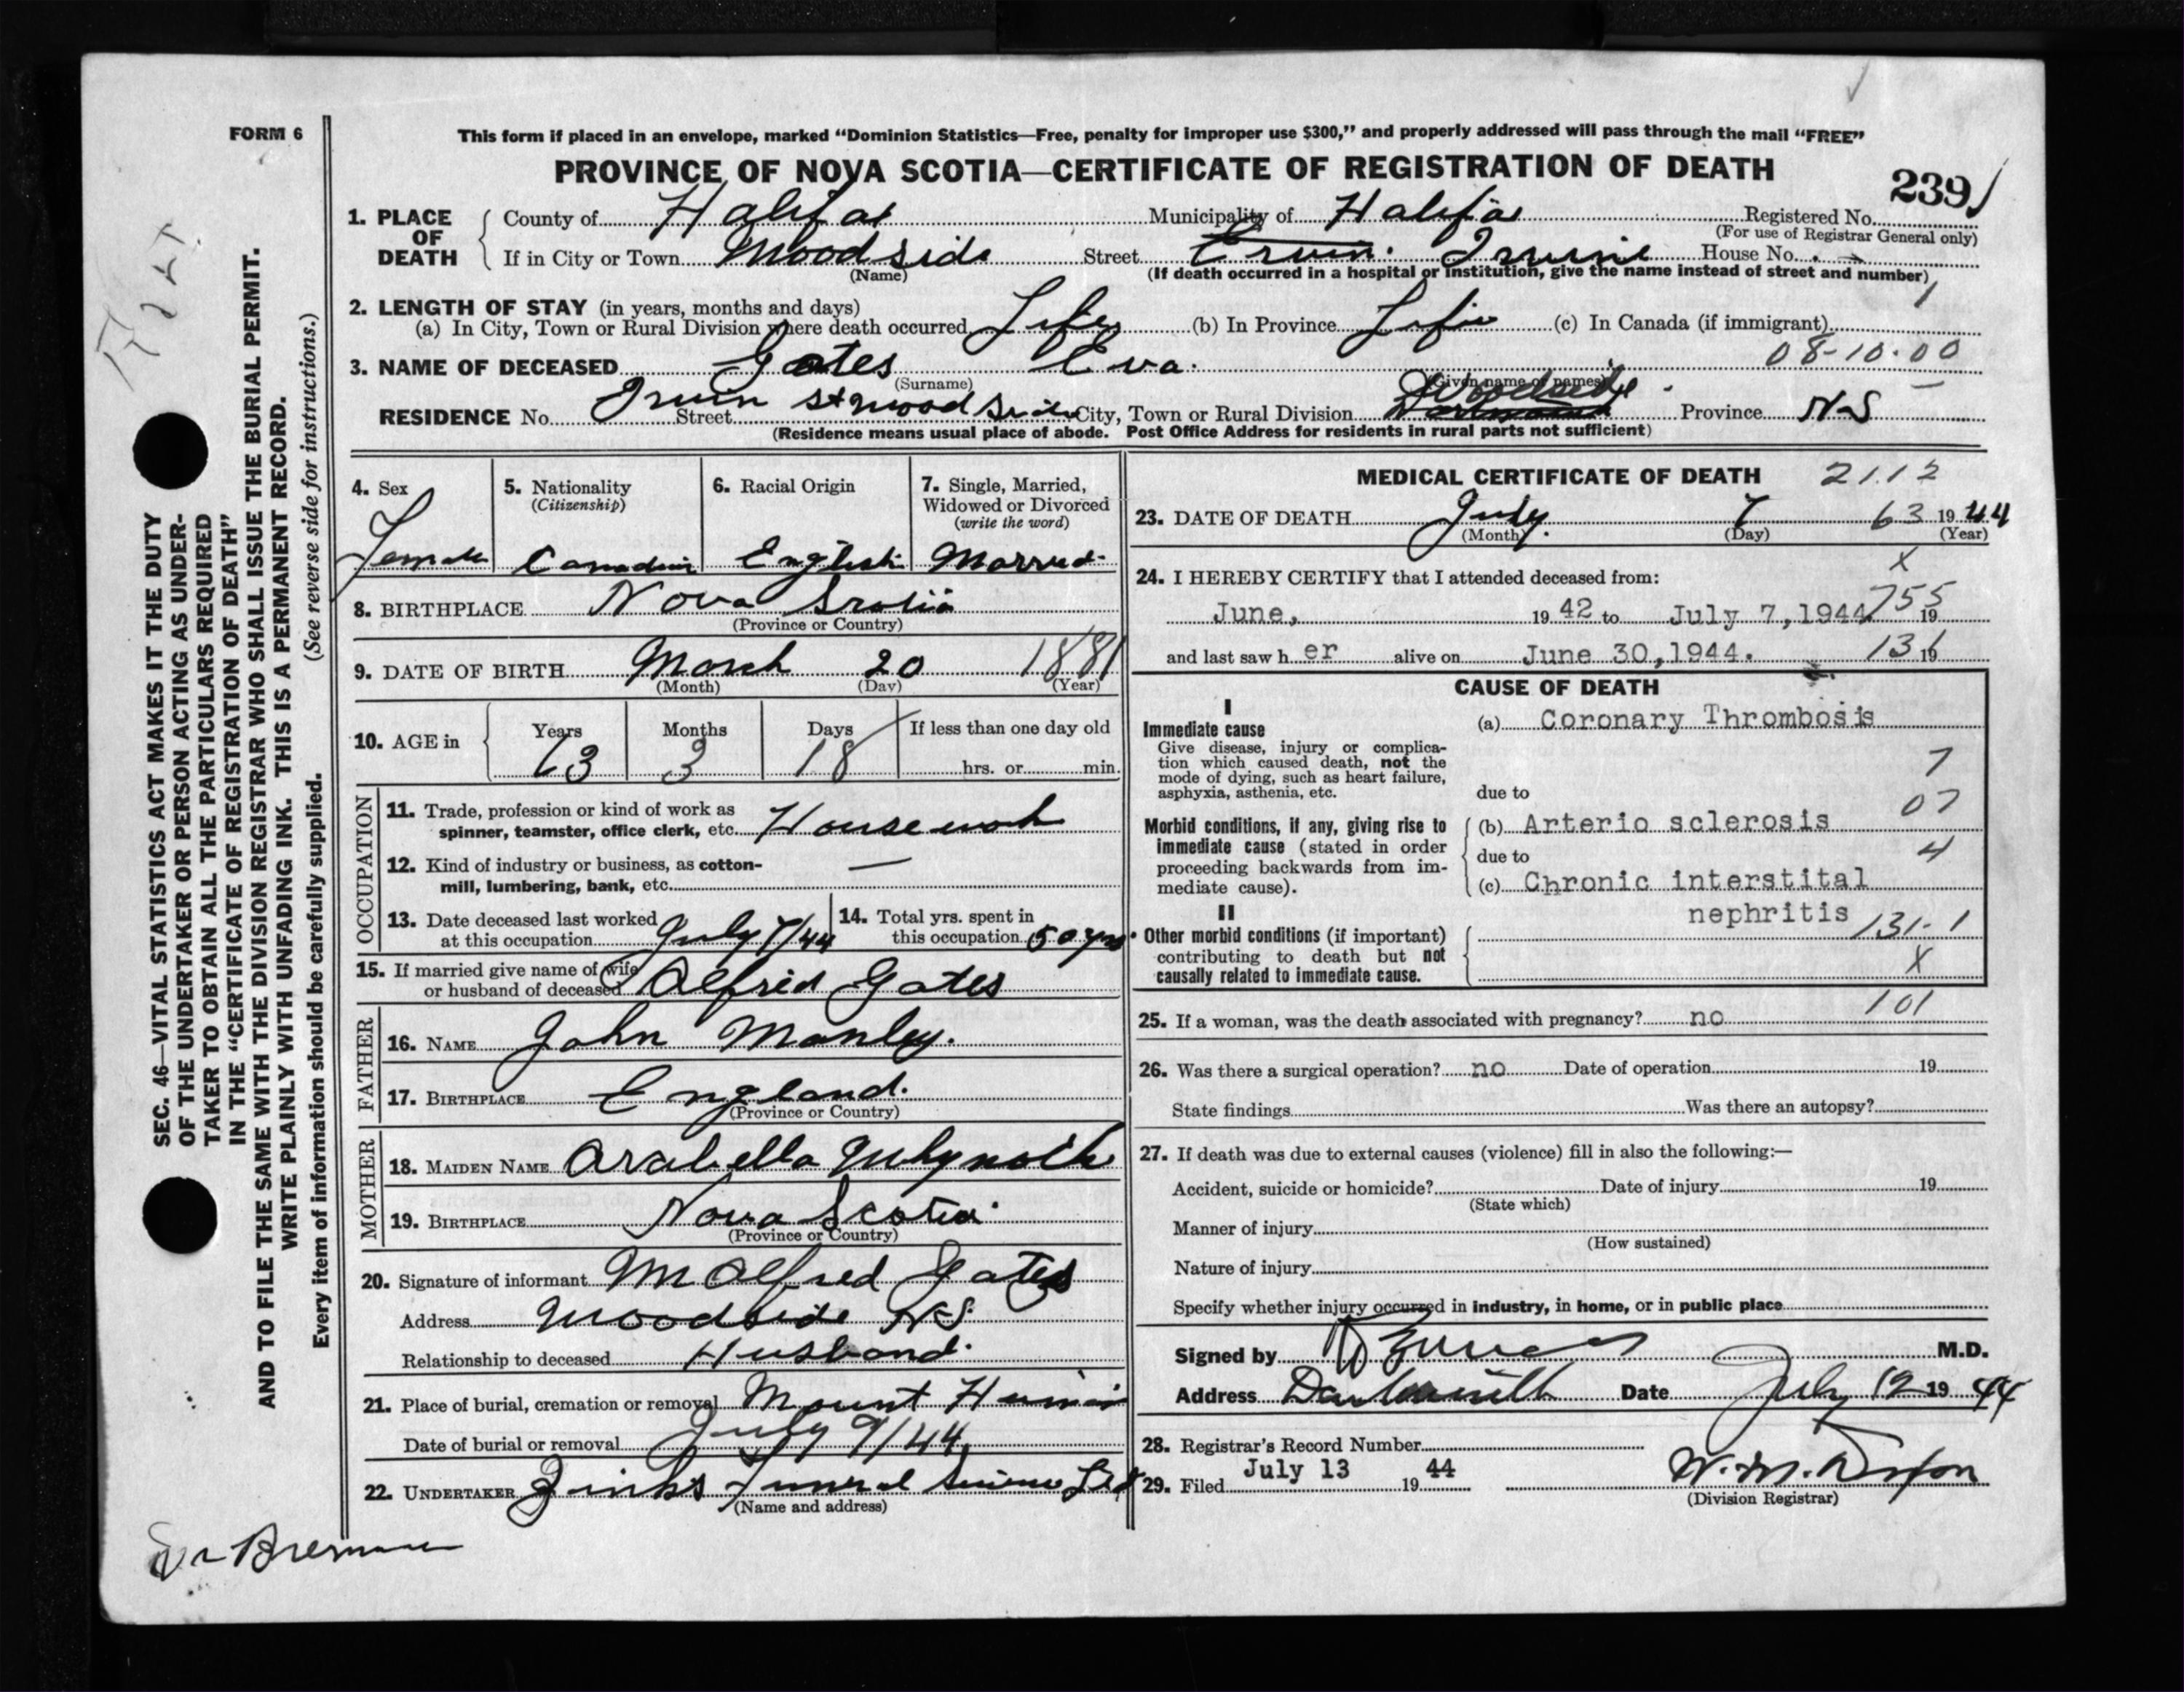 FORM 6
This form if placed in an envelope, marked "Dominion Statistics—Free, penalty for improper use $300," and properly addressed will pass through the mail "FREE"
PROVINCE OF NOVA SCOTIA—CERTIFICATE OF REGISTRATION OF DEATH
239
1. PLACE OF DEATH
County of Halifax Municipality of Halifax Registered No.
(For use of Registrar General only)
If in City or Town Woodside Street Erwin. Irvine House No.
(Name) (If death occurred in a hospital or institution, give the name instead of street and number)
1
2. LENGTH OF STAY (in years, months and days)
(a) In City, Town or Rural Division where death occurred Life (b) In Province Life (c) In Canada (if immigrant)
08-10-00
3. NAME OF DECEASED Gates Eva.
(Surname) (Given name or names)
RESIDENCE No. Irwin St Woodside Street City, Town or Rural Division Woodside Province N-S
(Residence means usual place of abode. Post Office Address for residents in rural parts not sufficient)
4. Sex
Female
5. Nationality
(Citizenship)
Canadian
6. Racial Origin
English
7. Single, Married,
Widowed or Divorced
(write the word)
Married
8. BIRTHPLACE Nova Scotia
(Province or Country)
9. DATE OF BIRTH March 20 1881
(Month) (Day) (Year)
10. AGE in Years Months Days If less than one day old
63 3 18 hrs. or min.
OCCUPATION
11. Trade, profession or kind of work as
spinner, teamster, office clerk, etc. Housework
12. Kind of industry or business, as cotton- —
mill, lumbering, bank, etc.
13. Date deceased last worked
at this occupation July 7/44
14. Total yrs. spent in
this occupation 50 yrs
15. If married give name of wife
or husband of deceased Alfred Gates
FATHER
16. NAME John Manley.
17. BIRTHPLACE England.
(Province or Country)
MOTHER
18. MAIDEN NAME Arabella
19. BIRTHPLACE Nova Scotia
(Province or Country)
20. Signature of informant M Alfred Gates
Address Woodside N.S.
Relationship to deceased Husband.
21. Place of burial, cremation or removal Mount
Date of burial or removal July 9/44
22. UNDERTAKER Zink's Funeral Service Ltd
(Name and address)
MEDICAL CERTIFICATE OF DEATH 2112
23. DATE OF DEATH July 7 63 1944
(Month) (Day) (Year)
X
24. I HEREBY CERTIFY that I attended deceased from:
June, 19 42 to July 7, 1944 19 755
and last saw h er alive on June 30, 1944. 19 131
CAUSE OF DEATH
I
Immediate cause
Give disease, injury or complica-
tion which caused death, not the
mode of dying, such as heart failure,
asphyxia, asthenia, etc.
(a) Coronary Thrombosis
7
due to
07
Morbid conditions, if any, giving rise to
immediate cause (stated in order
proceeding backwards from im-
mediate cause).
(b) Arterio sclerosis
due to
4
(c) Chronic interstital
nephritis 131-1
II
Other morbid conditions (if important)
contributing to death but not
causally related to immediate cause.
X
101
25. If a woman, was the death associated with pregnancy? no
26. Was there a surgical operation? no Date of operation 19
State findings Was there an autopsy?
27. If death was due to external causes (violence) fill in also the following:—
Accident, suicide or homicide? Date of injury 19
(State which)
Manner of injury
(How sustained)
Nature of injury
Specify whether injury occurred in industry, in home, or in public place
Signed by M.D.
Address Dartmouth Date July 12 19 44
28. Registrar's Record Number
29. Filed July 13 19 44
(Division Registrar)
SEC. 46—VITAL STATISTICS ACT MAKES IT THE DUTY
OF THE UNDERTAKER OR PERSON ACTING AS UNDER-
TAKER TO OBTAIN ALL THE PARTICULARS REQUIRED
IN THE "CERTIFICATE OF REGISTRATION OF DEATH"
AND TO FILE THE SAME WITH THE DIVISION REGISTRAR WHO SHALL ISSUE THE BURIAL PERMIT.
WRITE PLAINLY WITH UNFADING INK. THIS IS A PERMANENT RECORD.
Every item of information should be carefully supplied. (See reverse side for instructions.)